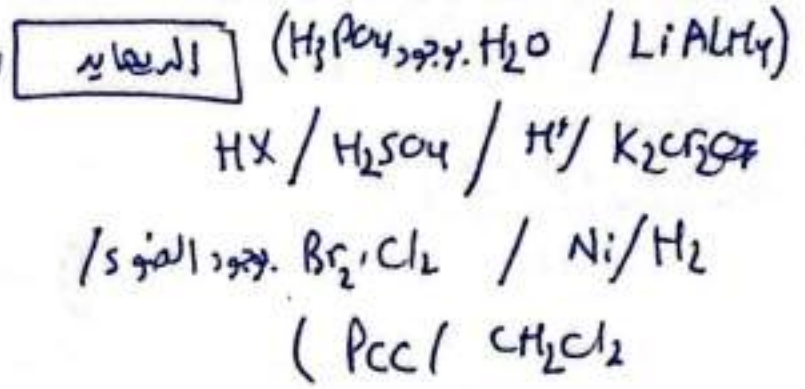 الديهايد (H3PO4 بوجود H2O / LiAlH4)
HX / H2SO4 / H+/ K2Cr2O7
/ بوجود الضوء Br2، Cl2 / Ni/H2
( PCC/ CH2Cl2